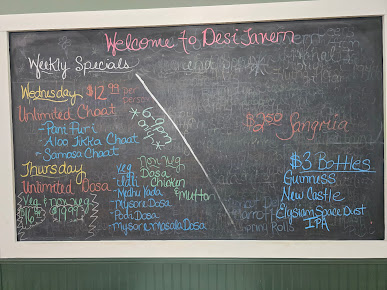 Welcome to Desi Tavern
Weekly Specials
Wednesday $12.99 per person
Unlimited Chaat
- Pani Puri
- Aloo Tikka Chaat
- Samosa Chaat
*6-9pm only*
Thursday
Unlimited Dosa
Veg $16.99
non veg $19.99
Veg
Idli
Medu Vada
Mysore Dosa
Podi Dosa
Mysore Masala Dosa
non veg
Dosa
Chicken
Mutton
Sangria
$3 Bottles
Guinness
New Castle
Elysian Space Dust
IPA